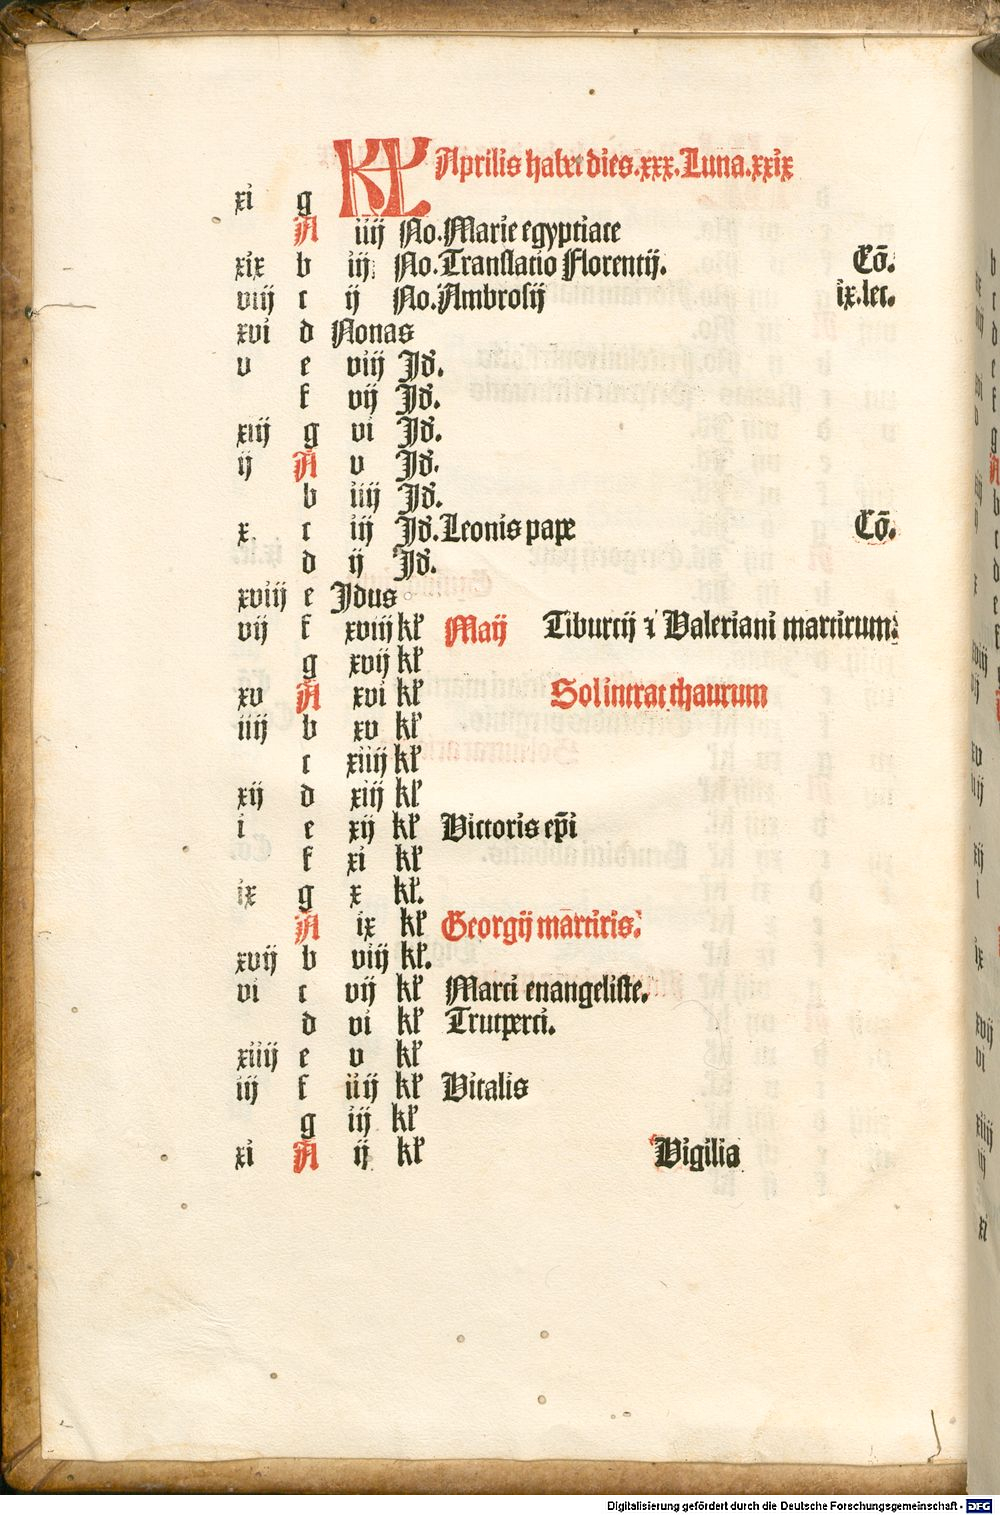 KL Aprilis habet dies.xxx.Luna.xxix
xi g
A iiij No.Marie egyptiace
xix b iij No.Translatio Florentij. Cō.
viij c ij No.Ambrosij ix.lec.
xvi d Nonas
v e viij Jd'.
f vij Jd'.
xiij g vi Jd'.
ij A v Jd'.
b iiij Jd'.
x c iij Jd'.Leonis pape Cō.
d ij Jd'.
xviij e Jdus
vij f xviij kł Maij Tiburcij ⁊ Valeriani martirum.
g xvij kł
xv A xvi kł Sol intrat thaurum
iiij b xv kł
c xiiij kł
xij d xiij kł
i e xij kł Victoris ep̄i
f xi kł
ix g x kł.
A ix kł Georgij mārtiris.
xvij b viij kł.
vi c vij kł Marci euangeliste.
d vi kł Trutperti.
xiiij e v kł
iij f iiij kł Vitalis
g iij kł
xi A ij kł Vigilia
Digitalisierung gefördert durch die Deutsche Forschungsgemeinschaft - DFG